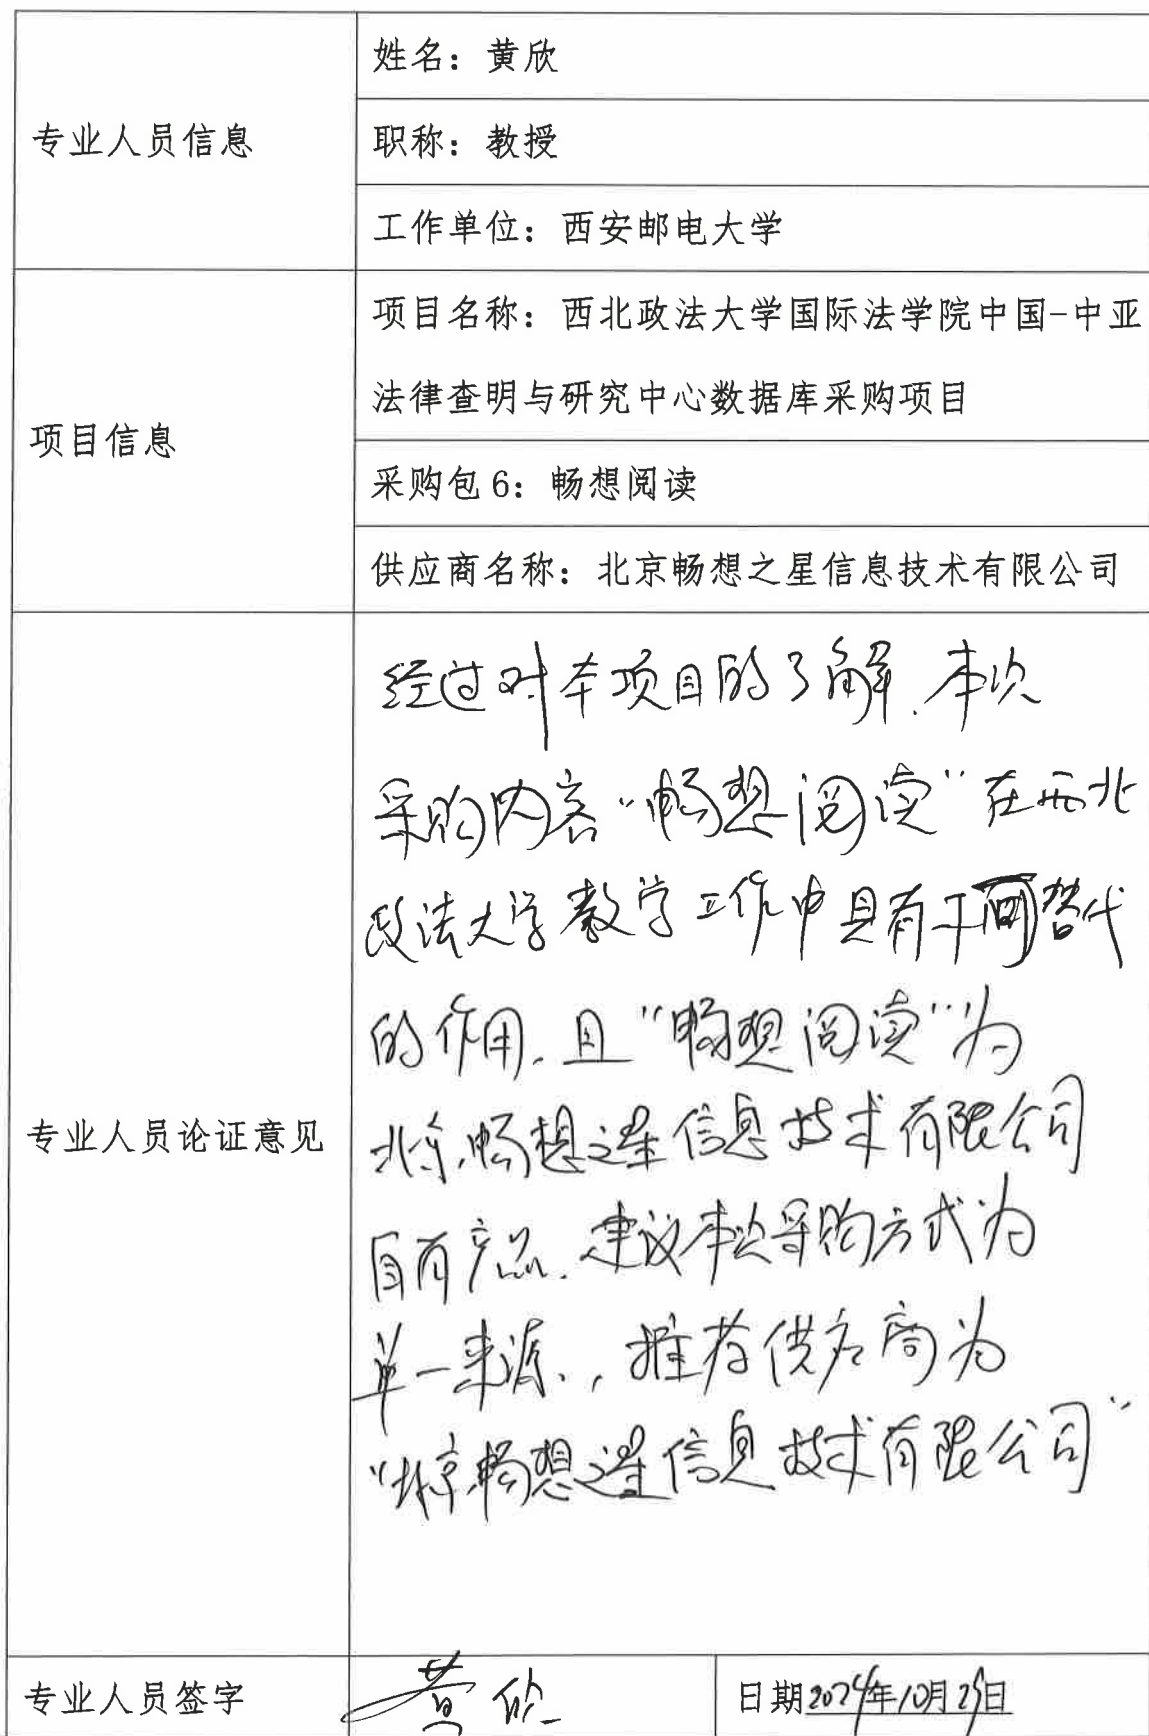 专业人员信息
姓名：黄欣
职称：教授
工作单位：西安邮电大学
项目信息
项目名称：西北政法大学国际法学院中国-中亚
法律查明与研究中心数据库采购项目
采购包 6：畅想阅读
供应商名称：北京畅想之星信息技术有限公司
专业人员论证意见
经过对本项目的了解，本次
采购内容“畅想阅读”在西北
政法大学教学工作中具有不可替代
的作用，且“畅想阅读”为
北京畅想之星信息技术有限公司
自有产品，建议本次采购方式为
单一来源，推荐供应商为
“北京畅想之星信息技术有限公司”
专业人员签字
黄欣
日期2024年10月29日